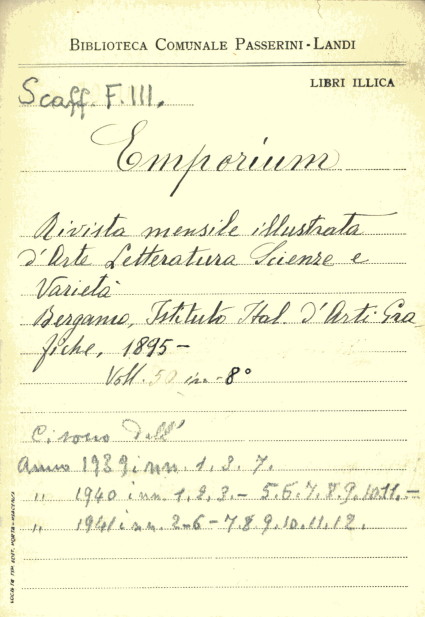 BIBLIOTECA COMUNALE PASSERINI-LANDI
LIBRI ILLICA
Scaff. F. III.
Emporium
Rivista mensile illustrata
d'Arte Letteratura Scienze e
Varietà
Bergamo, Istituto Ital. d'Arti Gra-
fiche, 1895-
Voll. 50 in-8°
Ci sono dell'
Anno 1939 i nn. 1. 3. 7.
" 1940 i nn. 1. 2. 3. - 5. 6. 7. 8. 9. 10. 11. -
" 1941 i nn. 2-6-7. 8. 9. 10. 11. 12.